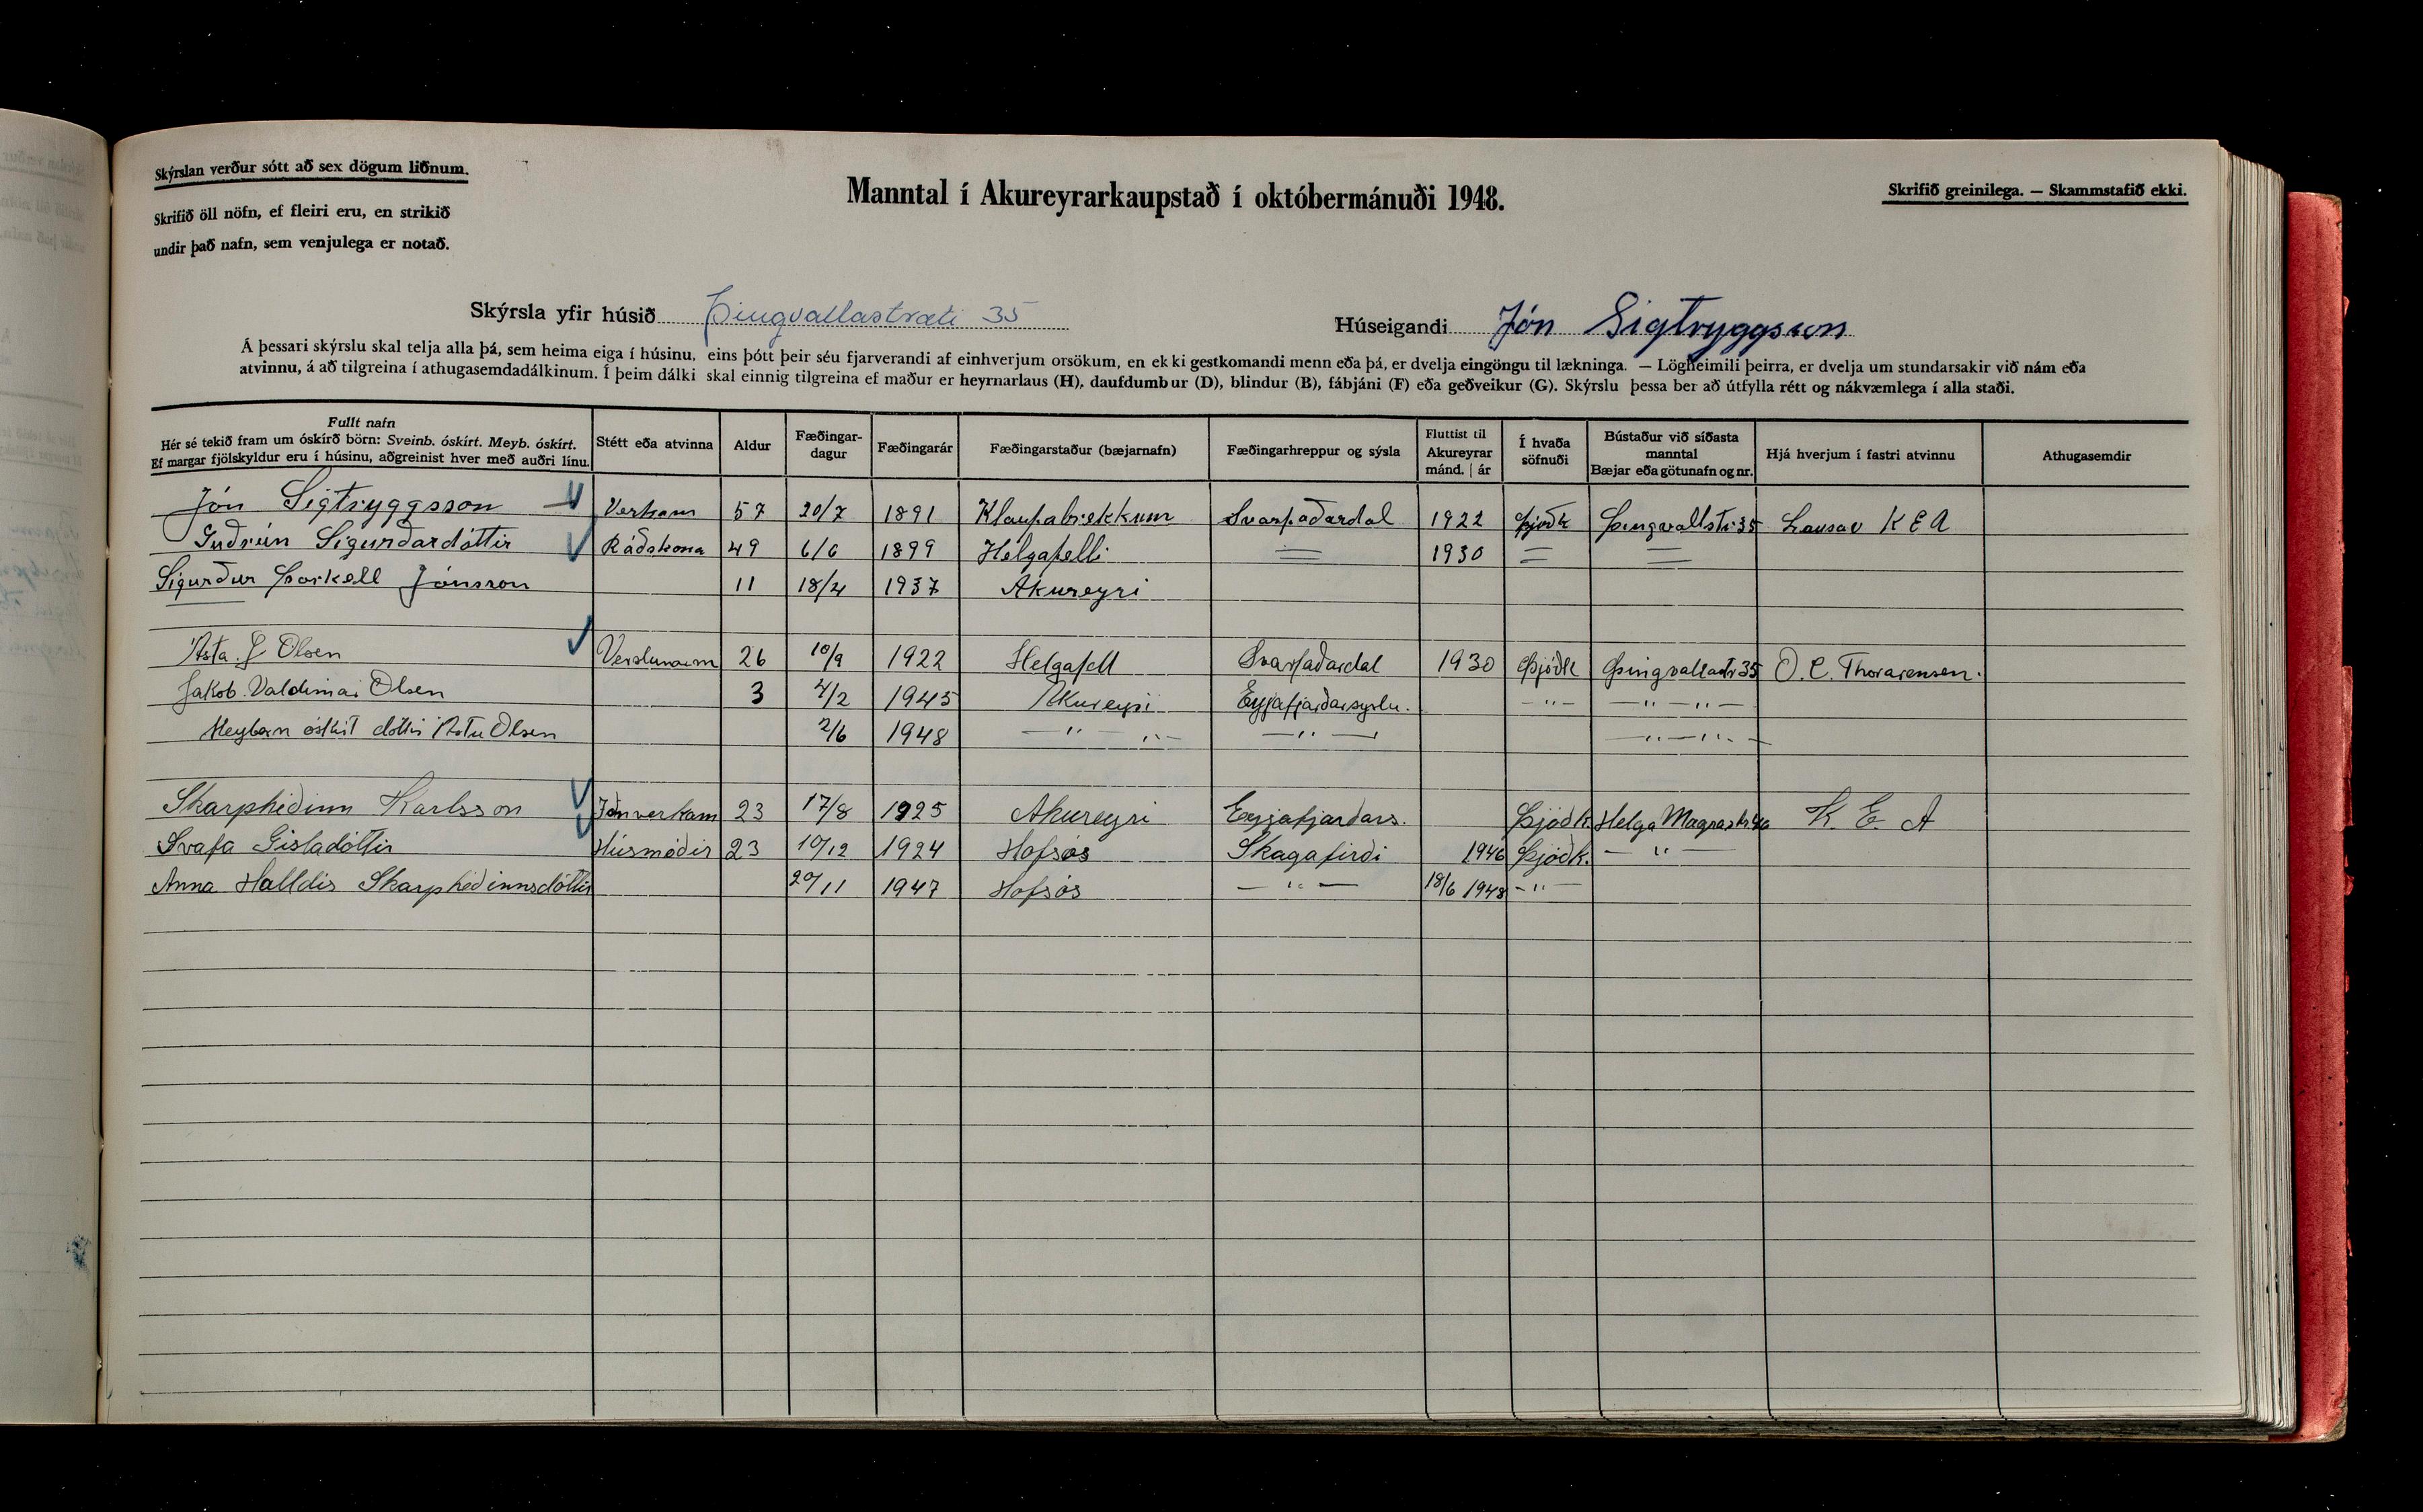 Skýrslan verður sótt að sex dögum liðnum.
Skrifið öll nöfn, ef fleiri eru, en strikið
undir það nafn, sem venjulega er notað.
Manntal í Akureyrarkaupstað í októbermánuði 1948.
Skrifið greinilega. — Skammstafið ekki.
Skýrsla yfir húsið Þingvallastræti 35 Húseigandi Jón Sigtryggsson
Á þessari skýrslu skal telja alla þá, sem heima eiga í húsinu, eins þótt þeir séu fjarverandi af einhverjum orsökum, en ekki gestkomandi menn eða þá, er dvelja eingöngu til lækninga. — Lögheimili þeirra, er dvelja um stundarsakir við nám eða
atvinnu, á að tilgreina í athugasemdadálkinum. Í þeim dálki skal einnig tilgreina ef maður er heyrnarlaus (H), daufdumbur (D), blindur (B), fábjáni (F) eða geðveikur (G). Skýrslu þessa ber að útfylla rétt og nákvæmlega í alla staði.
Fullt nafn
Hér sé tekið fram um óskírð börn: Sveinb. óskírt. Meyb. óskírt.
Ef margar fjölskyldur eru í húsinu, aðgreinist hver með auðri línu.
Stétt eða atvinna
Aldur
Fæðingar-
dagur
Fæðingarár
Fæðingarstaður (bæjarnafn)
Fæðingarhreppur og sýsla
Fluttist til
Akureyrar
mánd. | ár
Í hvaða
söfnuði
Bústaður við síðasta
manntal
Bæjar eða götunafn og nr.
Hjá hverjum í fastri atvinnu
Athugasemdir
Jón Sigtryggsson Verkam 57 20/7 1891 Klaufabrekkum Svarfaðardal 1922 Þjóðk Þingvallstr 35 Lausav K E A
Guðrún Sigurðardóttir Ráðskona 49 6/6 1899 Helgafelli = 1930 = =
Sigurður Þorkell Jónsson 11 18/4 1937 Akureyri
Ásta. J Olsen Verslunarm 26 10/9 1922 Helgafell Svarfaðardal 1930 Þjóðk Þingvallastr 35 O. C. Thorarensen.
Jakob Valdimar Olsen 3 4/2 1945 Akureyri Eyjafjarðarsýslu. -"- -"-"-
Meybarn óskírt dóttir Ástu Olsen 2/6 1948 -" "- -"- -"-"-
Skarphéðinn Karlsson Iðnverkam 23 17/8 1925 Akureyri Eyjafjarðars. Þjóðk. Helga Magrastr 46 K. E. A
Svafa Gísladóttir Húsmóðir 23 10/12 1924 Hofsós Skagafirði 1946 Þjóðk. -"-
Anna Halldís Skarphéðinnsdóttir 20/11 1947 Hofsós -"- 18/6 1948 -"-